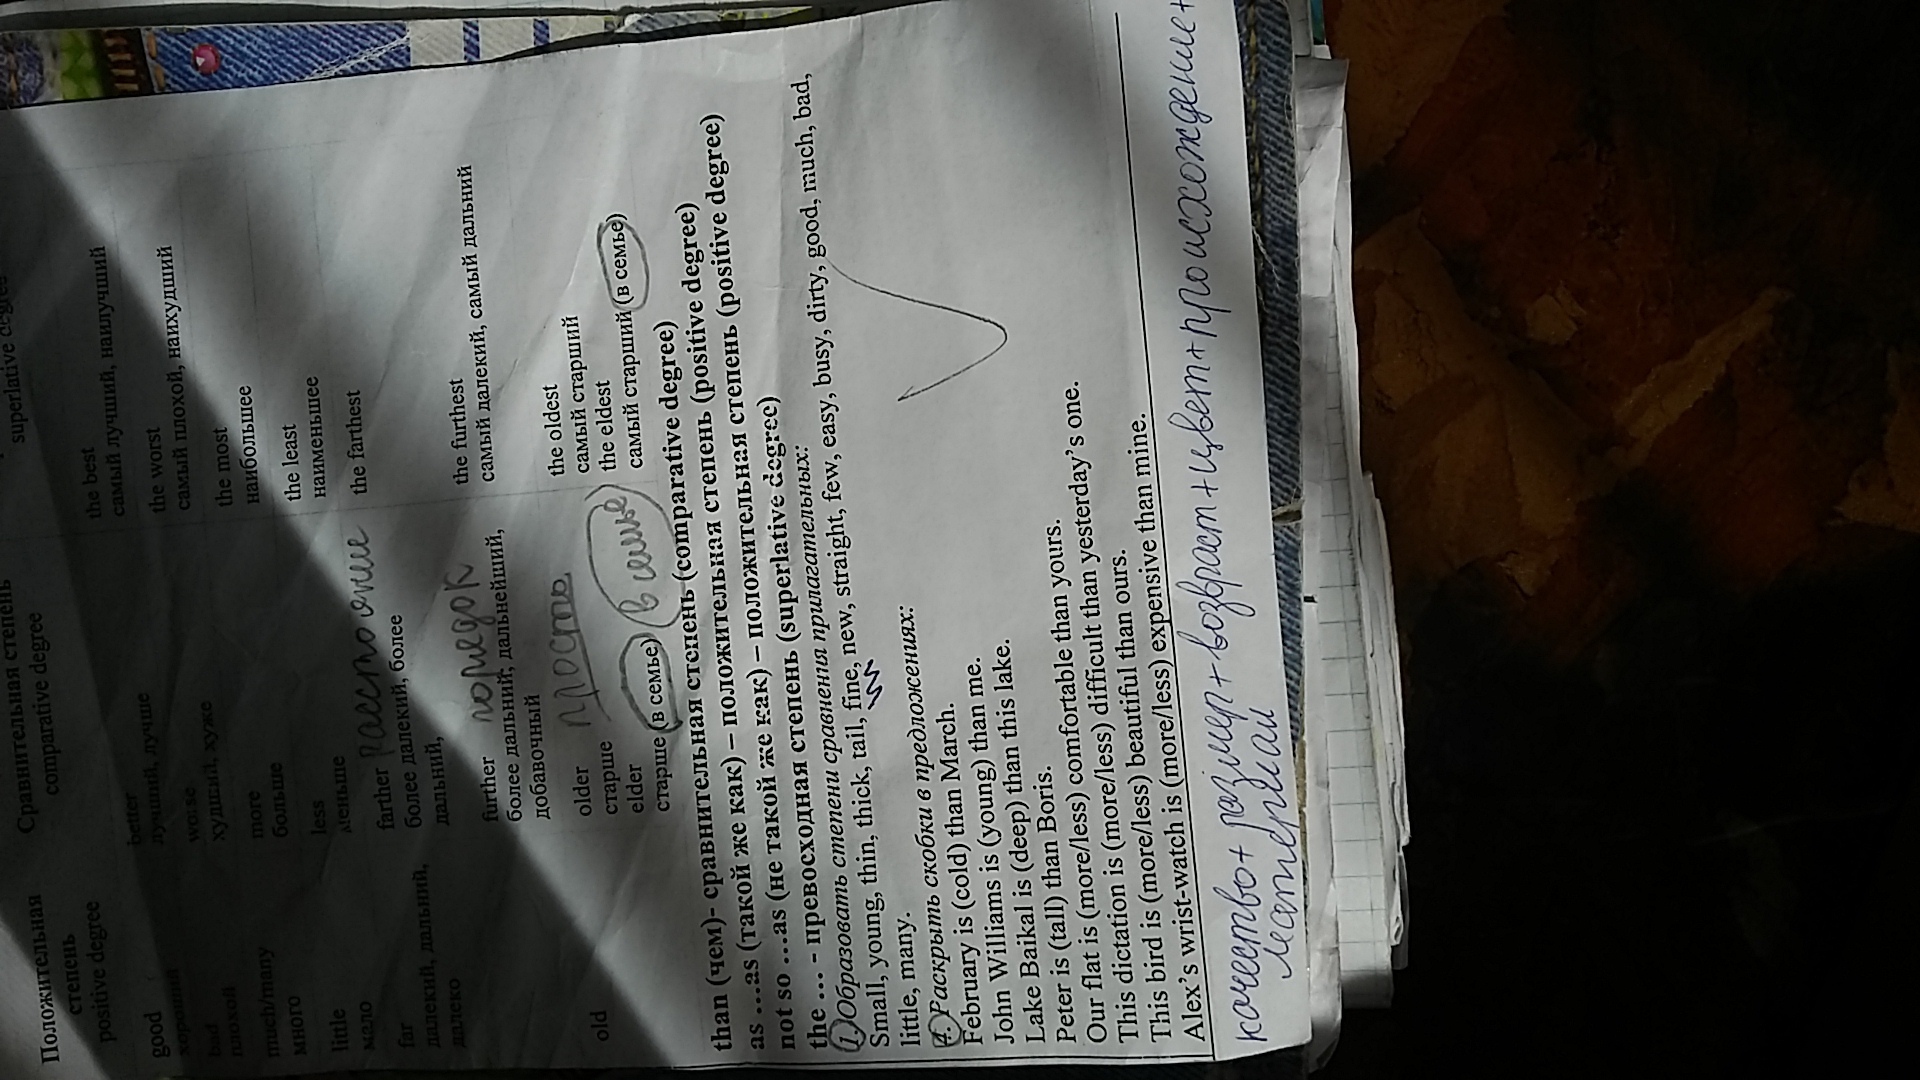 Положительная степень Сравнительная степень
positive degree comparative degree superlative degree
good better the best
хороший лучший, лучше самый лучший, наилучший
bad worse the worst
плохой худший, хуже самый плохой, наихудший
much/many more the most
много больше наибольшее
little less the least
мало меньше наименьшее
far farther расстояние the farthest
далекий, дальний, более далекий, более
далеко дальний,
further порядок the furthest
более дальний, дальнейший, самый далекий, самый дальний
добавочный
old older просто the oldest
старше самый старший
elder the eldest
старше (в семье) (в семье) самый старший (в семье)
than (чем)- сравнительная степень (comparative degree)
as …as (такой же как) – положительная степень (positive degree)
not so …as (не такой же как) – положительная степень (positive degree)
the … - превосходная степень (superlative degree)
1. Образовать степени сравнения прилагательных:
Small, young, thin, thick, tail, fine, new, straight, few, easy, busy, dirty, good, much, bad,
little, many.
4. Раскрыть скобки в предложениях:
February is (cold) than March.
John Williams is (young) than me.
Lake Baikal is (deep) than this lake.
Peter is (tall) than Boris.
Our flat is (more/less) comfortable than yours.
This dictation is (more/less) difficult than yesterday's one.
This bird is (more/less) beautiful than ours.
Alex's wrist-watch is (more/less) expensive than mine.
качество+ размер+ возраст+цвет+происхождение+
материал